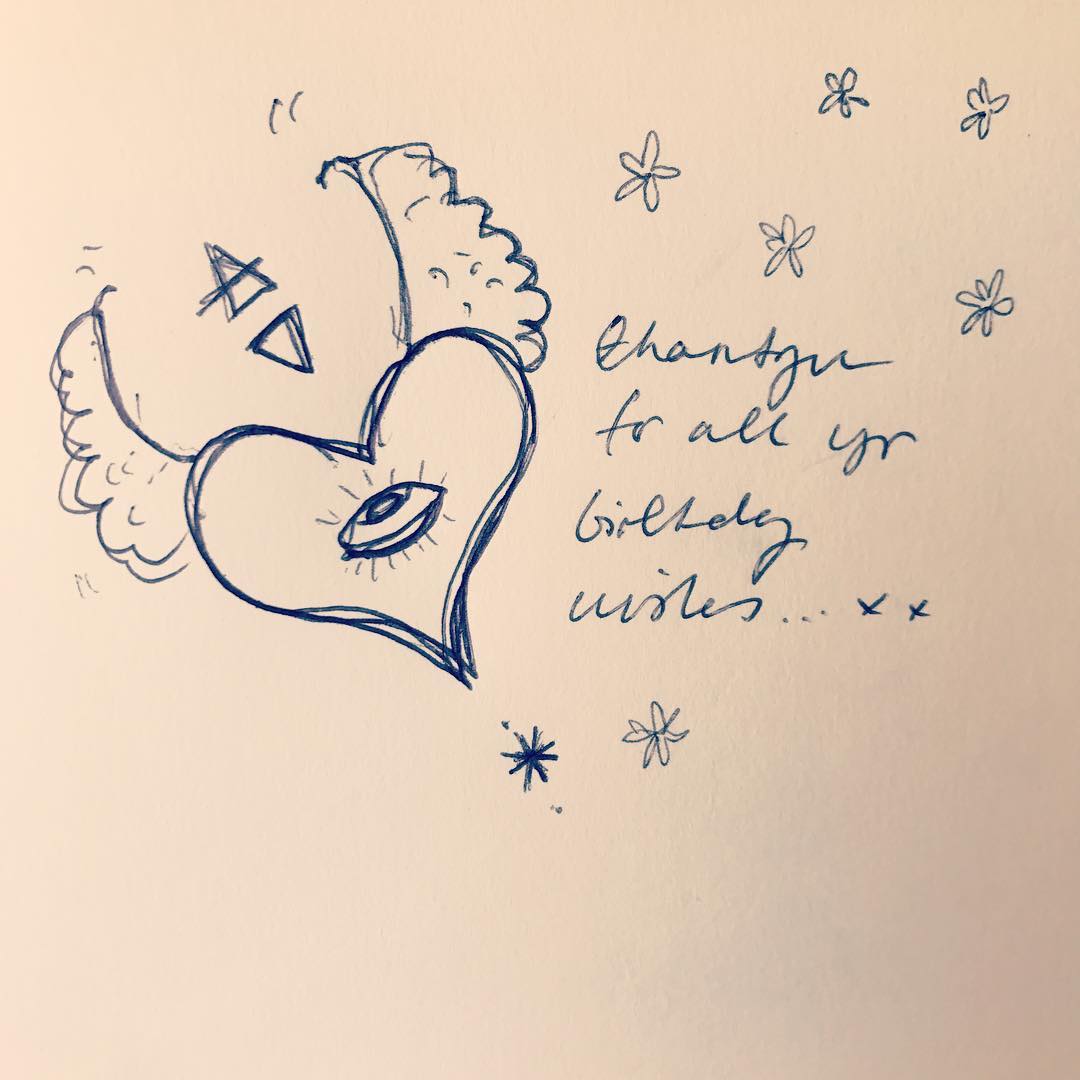 thankyu
for all yr
birthday
wishes... x x